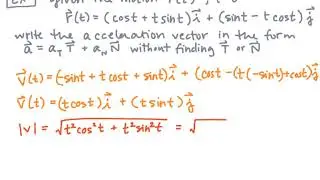 r⃗(t) = (cost + tsint)i⃗ + (sint - tcost)j⃗
write the acceleration vector in the form
a⃗ = a_T T⃗ + a_N N⃗ without finding T⃗ or N⃗
v⃗(t) = (-sint + tcost + sint)i⃗ + (cost - (t(-sint) + cost)j⃗
v⃗(t) = (tcost)i⃗ + (tsint)j⃗
|v| = √(t²cos²t + t²sin²t) = √